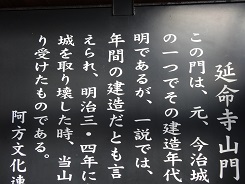 延命寺山門
この門は、元、今治城
の一つでその建造年代
明であるが、一説では、
年間の建造だとも言
えられ、明治三・四年に
城を取り壊した時、当山
り受けたものである。
阿方文化連